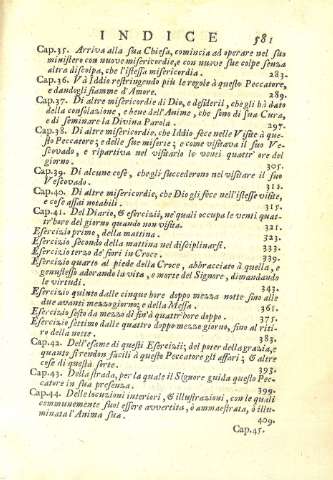 INDICE 581
Cap.35. Arriva alla sua Chiesa, comincia ad operare nel suo
ministero con nuove misericordie, e con nuove sue colpe senza
altra discolpa, che l'istessa misericordia. 283.
Cap.36. Và Iddio restringendo più le regole à questo Peccatore,
e dandogli fiamme d'Amore. 289.
Cap.37. Di altre misericordie di Dio, e desiderii, che gli hà dato
della consolazione, e bene dell'Anime, che sono di sua Cura,
e di seminare la Divina Parola. 297.
Cap.38. Di altre misericordie, che Iddio fece nelle Visite à que-
sto Peccatore; e delle sue miserie; e come visitava il suo Ve-
scovado, e ripartiva nel visitarlo le venti quattr'ore del
giorno. 305.
Cap.39. Di alcune cose, che gli succederono nel visitare il suo
Vescovado. 312.
Cap.40. Di altre misericordie, che Dio gli fece nell'istesse visite,
e cose assai notabili. 315.
Cap.41. Del Diario, & esercizii, ne' quali occupa le venti quat-
tr'bore del giorno quando non visita. 321.
Esercizio primo, della mattina. 321.
Esercizio secondo della mattina nel disciplinarsi. 333.
Esercizio terzo de' fiori in Croce. 339.
Esercizio quarto al piede della Croce, abbracciato à quella, e
genuflesso adorando la vita, e morte del Signore, dimandando
le virtudi. 343.
Esercizio quinto dalle cinque bore doppo mezza notte sino alle
due avanti mezzogiorno; e della Messa. 361.
Esercizio sesto da mezzo dì sin'à quattr'bore doppo. 375.
Esercizio settimo dalle quattro doppo mezzo giorno, sino al riti-
ro della notte. 383.
Cap.42. Dell'esame di questi Esercizii; del poter della grazia, e
quanto si rendon facili à questo Peccatore gli affari; & altre
cose di questa sorte. 393.
Cap.43. Della strada, per la quale il Signore guida questo Pec-
catore in sua presenza. 399.
Cap.44. Delle locuzioni interiori, & illustrazioni, con le quali
communemente suol essere avvertito, ò ammaestrato, ò illu-
minata l'Anima sua. 409.
Cap.45.